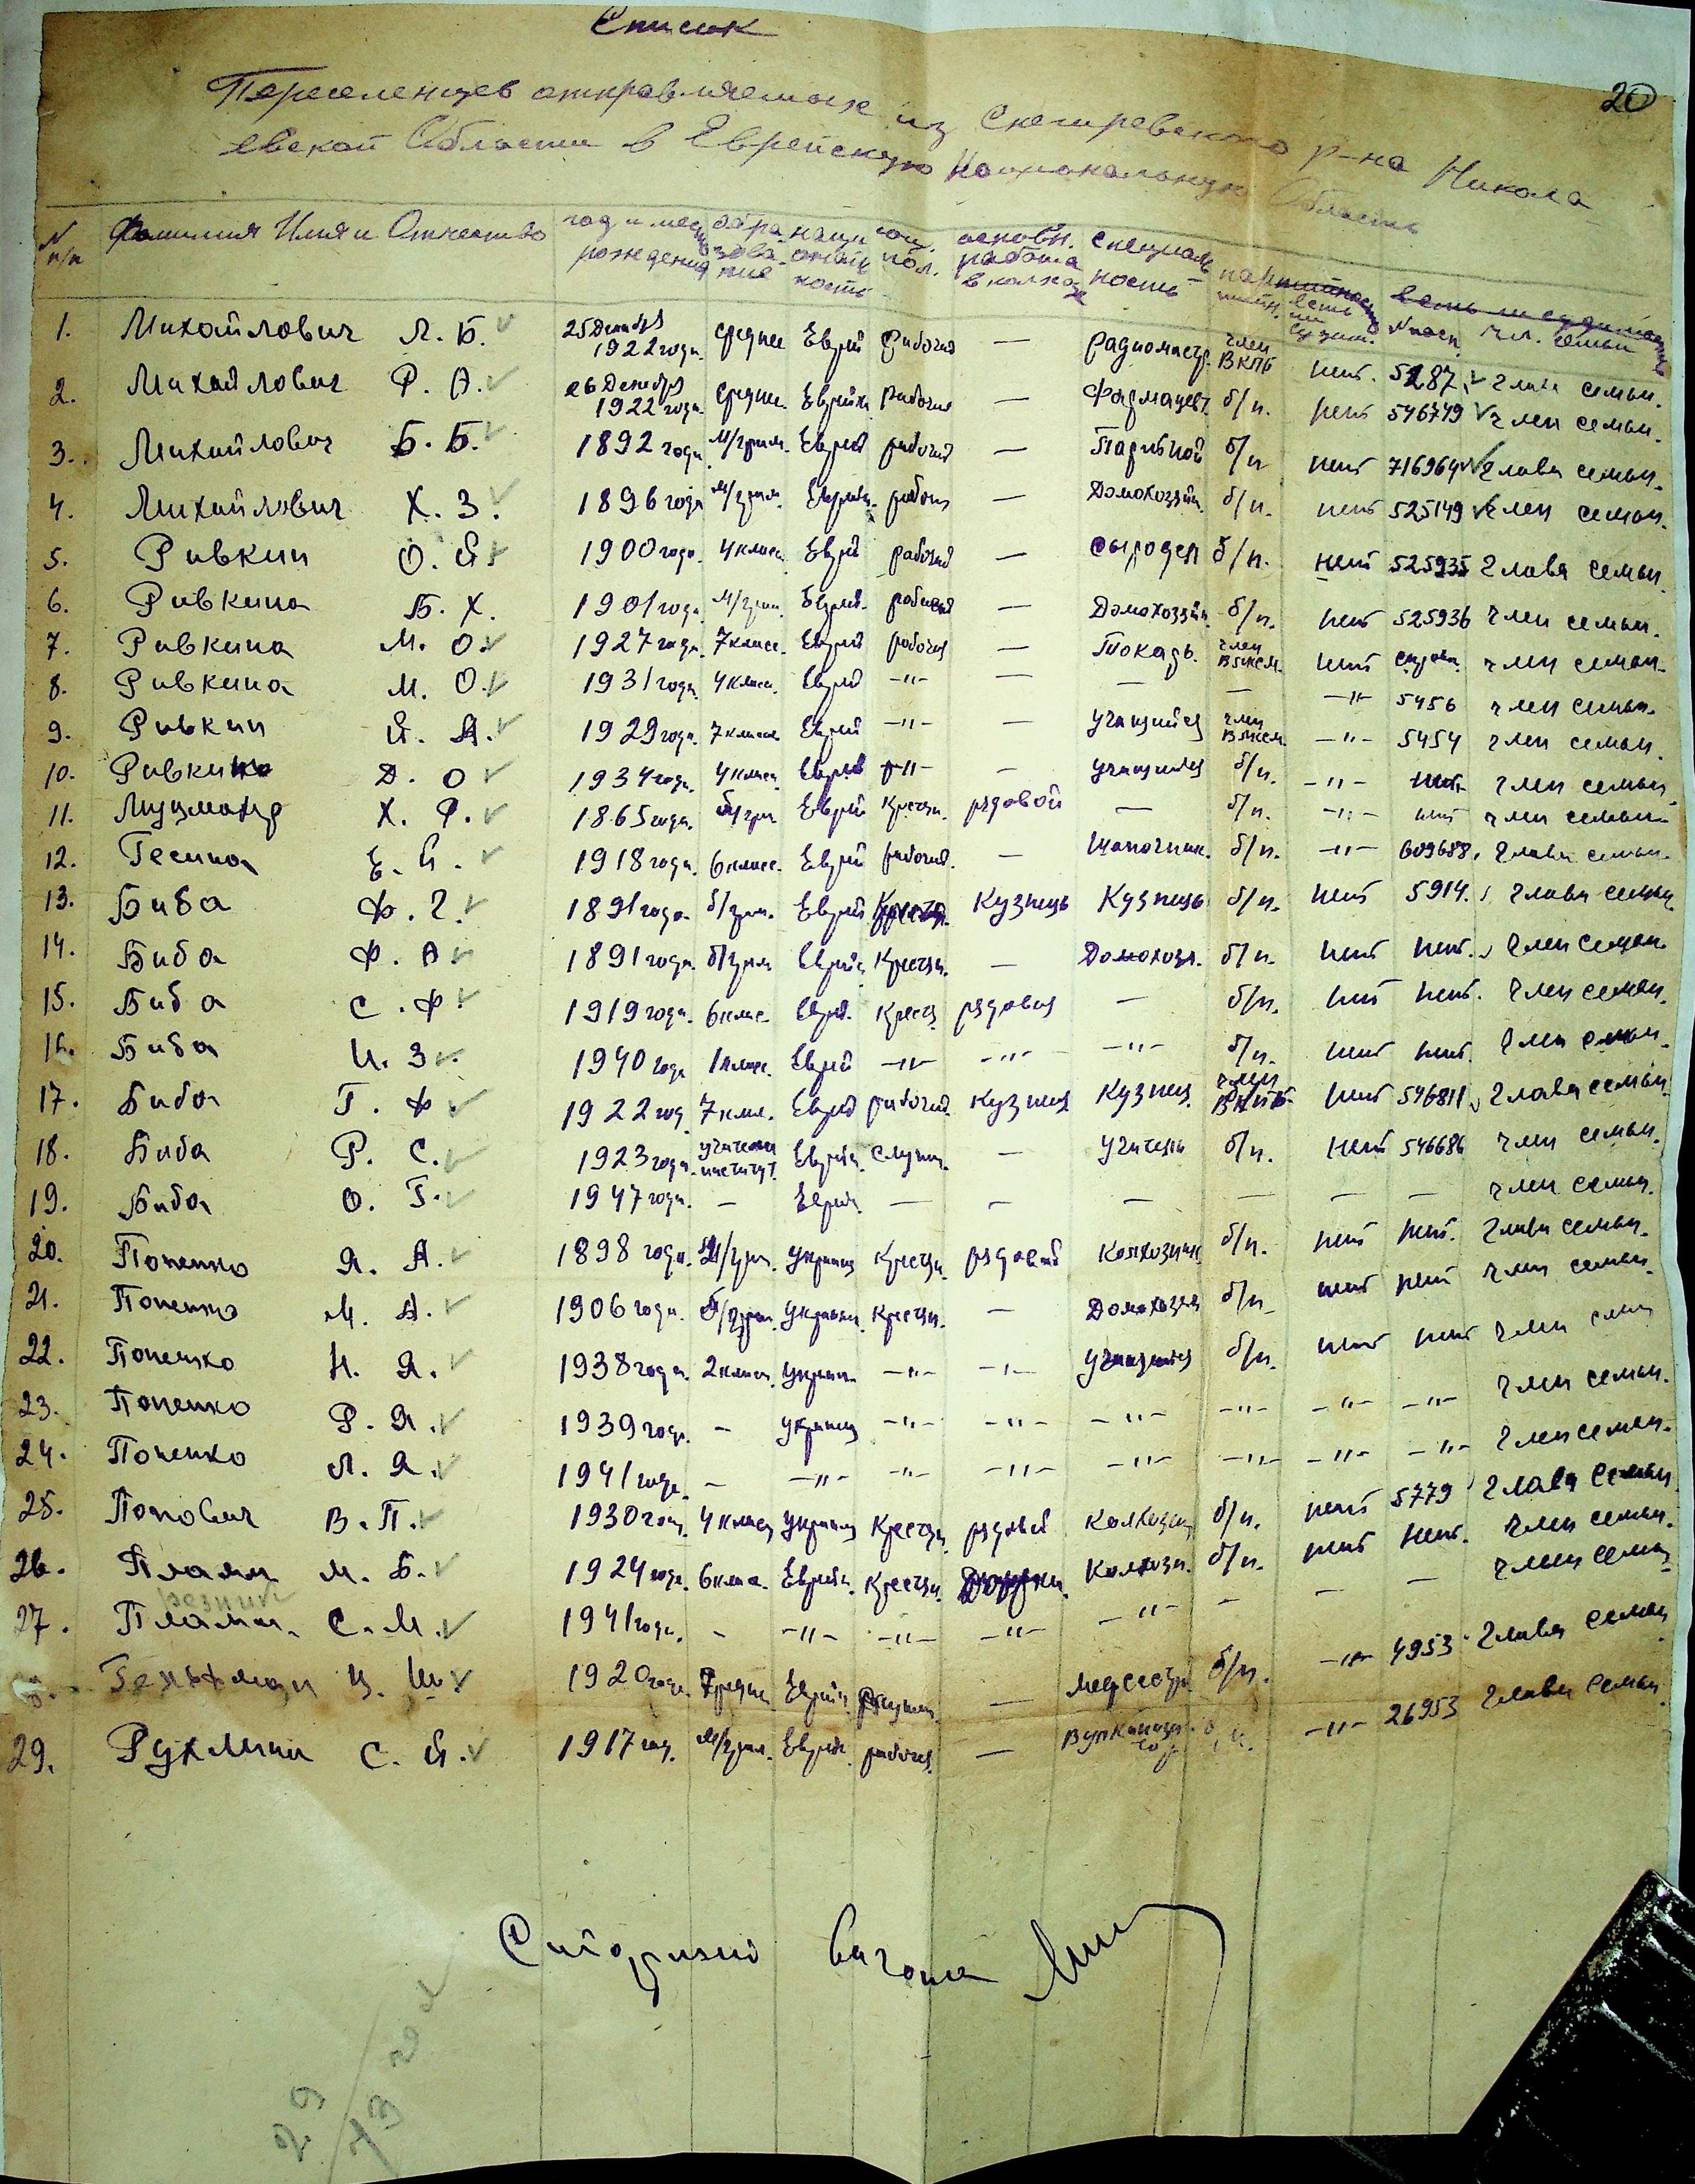 Список
20
Переселенцев отправляемых из Снегиревского р-на Никола
евской Области в Еврейскую Национальную Область
N п/п Фамилия Имя и Отчество год и место рождения образование национальность соц. пол. основн. работа в колхозе специальность есть ли судим. N пасп. чл. семьи
1. Михайлович Л. Б. 25 Декабря 1922 года. среднее Еврей рабочий — радиомаст. член ВКПБ нет. 5287 глава семьи.
2. Михайлович Р. А. 26 Декабря 1922 года. средне. Еврейка рабочая — Фармацевт. б/п. нет 546749 член семьи.
3. Михайлович Б. Б. 1892 года. м/грам. Еврей рабочий — б/п нет 716964 глава семьи.
4. Михайлович Х. З. 1896 года м/грам. Еврейк. рабоч. — Домохозяй. б/п. нет 525149 член семьи.
5. Ривкин О. Й. 1900 года. 4 класс. Еврей рабочий — сыродел б/п. нет 525935 глава семьи
6. Ривкина Б. Х. 1901 года. м/грам. Еврей. рабочий — Домохозяй. б/п. нет 525936 член семьи.
7. Ривкина М. О. 1927 года. 7 класс. Еврей рабочая — Токарь. член ВЛКСМ. нет член семьи.
8. Ривкина М. О. 1931 года. 4 класс. Еврей -"- — — — -"- 5456 член семьи.
9. Ривкин Й. А. 1929 года. 7 класс Еврей -"- — учащийся член ВЛКСМ. -"- 5454 член семьи.
10. Ривкин Д. О 1934 года. 4 класс. Еврей -"- — учащийся б/п. -"- нет. член семьи
11. Х. Ф. 1865 года. б/гр. Еврей Крестьн. рядовой — б/п. -"- нет член семьи
12. Гесина Е. Й. 1918 года. 6 класс. Еврей рабочий. — Шапочник. б/п. -"- 609688. глава семьи.
13. Биба Ф. Г. 1891 года. б/грам. Еврей Кузнець Кузнець б/п. нет 5914. глава семьи.
14. Биба Ф. А 1891 года. б/грам Еврейк Крестьн. — Домохозя. б/п. нет нет. член семьи.
15. Биба С. Ф. 1919 года. 6 клас. Еврей. Крестьн. рядовая — б/п. нет нет. член семьи.
16. Биба И. З. 1940 года 1 класс. Еврей -"- -"- -"- б/п. нет нет. член семьи.
17. Биба Г. Ф. 1922 год. 7 клас. Еврей рабочий. кузнец Кузнец. член ВКПБ нет 546811 глава семьи
18. Биба Р. С. 1923 года. институт. Еврейк. служ. — учитель б/п. нет 546686 член семьи.
19. Биба О. Г. 1947 года. — Еврей. — — — — — — член семьи.
20. Попенко Я. А. 1898 года. М/грам. украин Крестьн. рядовой Колхозник б/п. нет нет. глава семьи.
21. Попенко М. А. 1906 года. б/грам. украинк. Крестьн. — Домохозяй б/п. нет нет член семьи.
22. Попенко Н. Я. 1938 года. 2 класс. украин. -"- -"- учащийся б/п. нет нет член семьи
23. Попенко Р. Я. 1939 года. — украин -"- -"- -"- -"- -"- -"- член семьи.
24. Попенко Л. Я. 1941 года. — -"- -"- -"- -"- -"- -"- -"- член семьи.
25. Попович В. П. 1930 года. 4 класс украин Крестьн. рядовой Колхозн б/п. нет 5779 глава семьи
26. Плами М. Б. 1924 года. 6 клас. Еврейк. Крестьн. Колхозн. б/п. нет нет. член семьи.
резник
27. Плами. С. М. 1941 года. - -"- -"- -"- -"- - — — член семьи
Гельфман Ц. Ш. 1920 года. Еврейк — медсестра б/п. -"- 4953 глава семьи
29. С. Й. 1917 год. м/грам. Еврейк. рабочая. — б/п. -"- 26953 глава семьи.
29